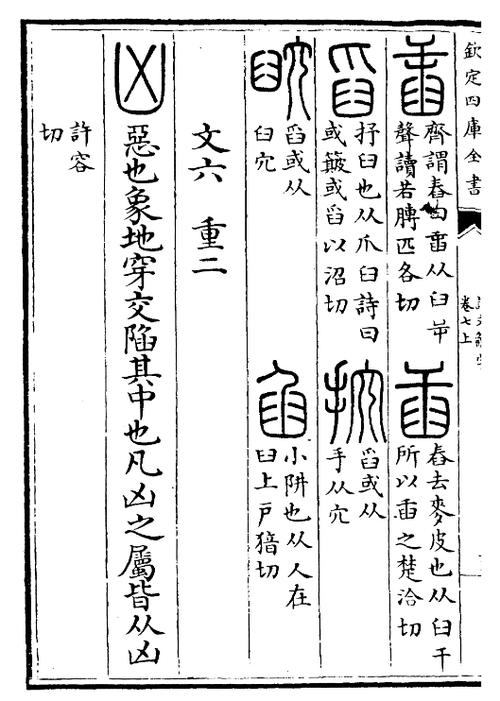 欽定四庫全書
卷七上
𦥛
齊謂舂曰𦥛从臼屰
聲讀若膊匹各切
臿
舂去麥皮也从臼干
所以臿之楚洽切
舀
抒臼也从爪臼詩曰
或簸或舀以沼切
抭
舀或从
手从穴
舀或从
臼穴
臽
小阱也从人在
臼上戶切
文六 重二
凶
惡也象地穿交陷其中也凡凶之屬皆从凶
許容
切